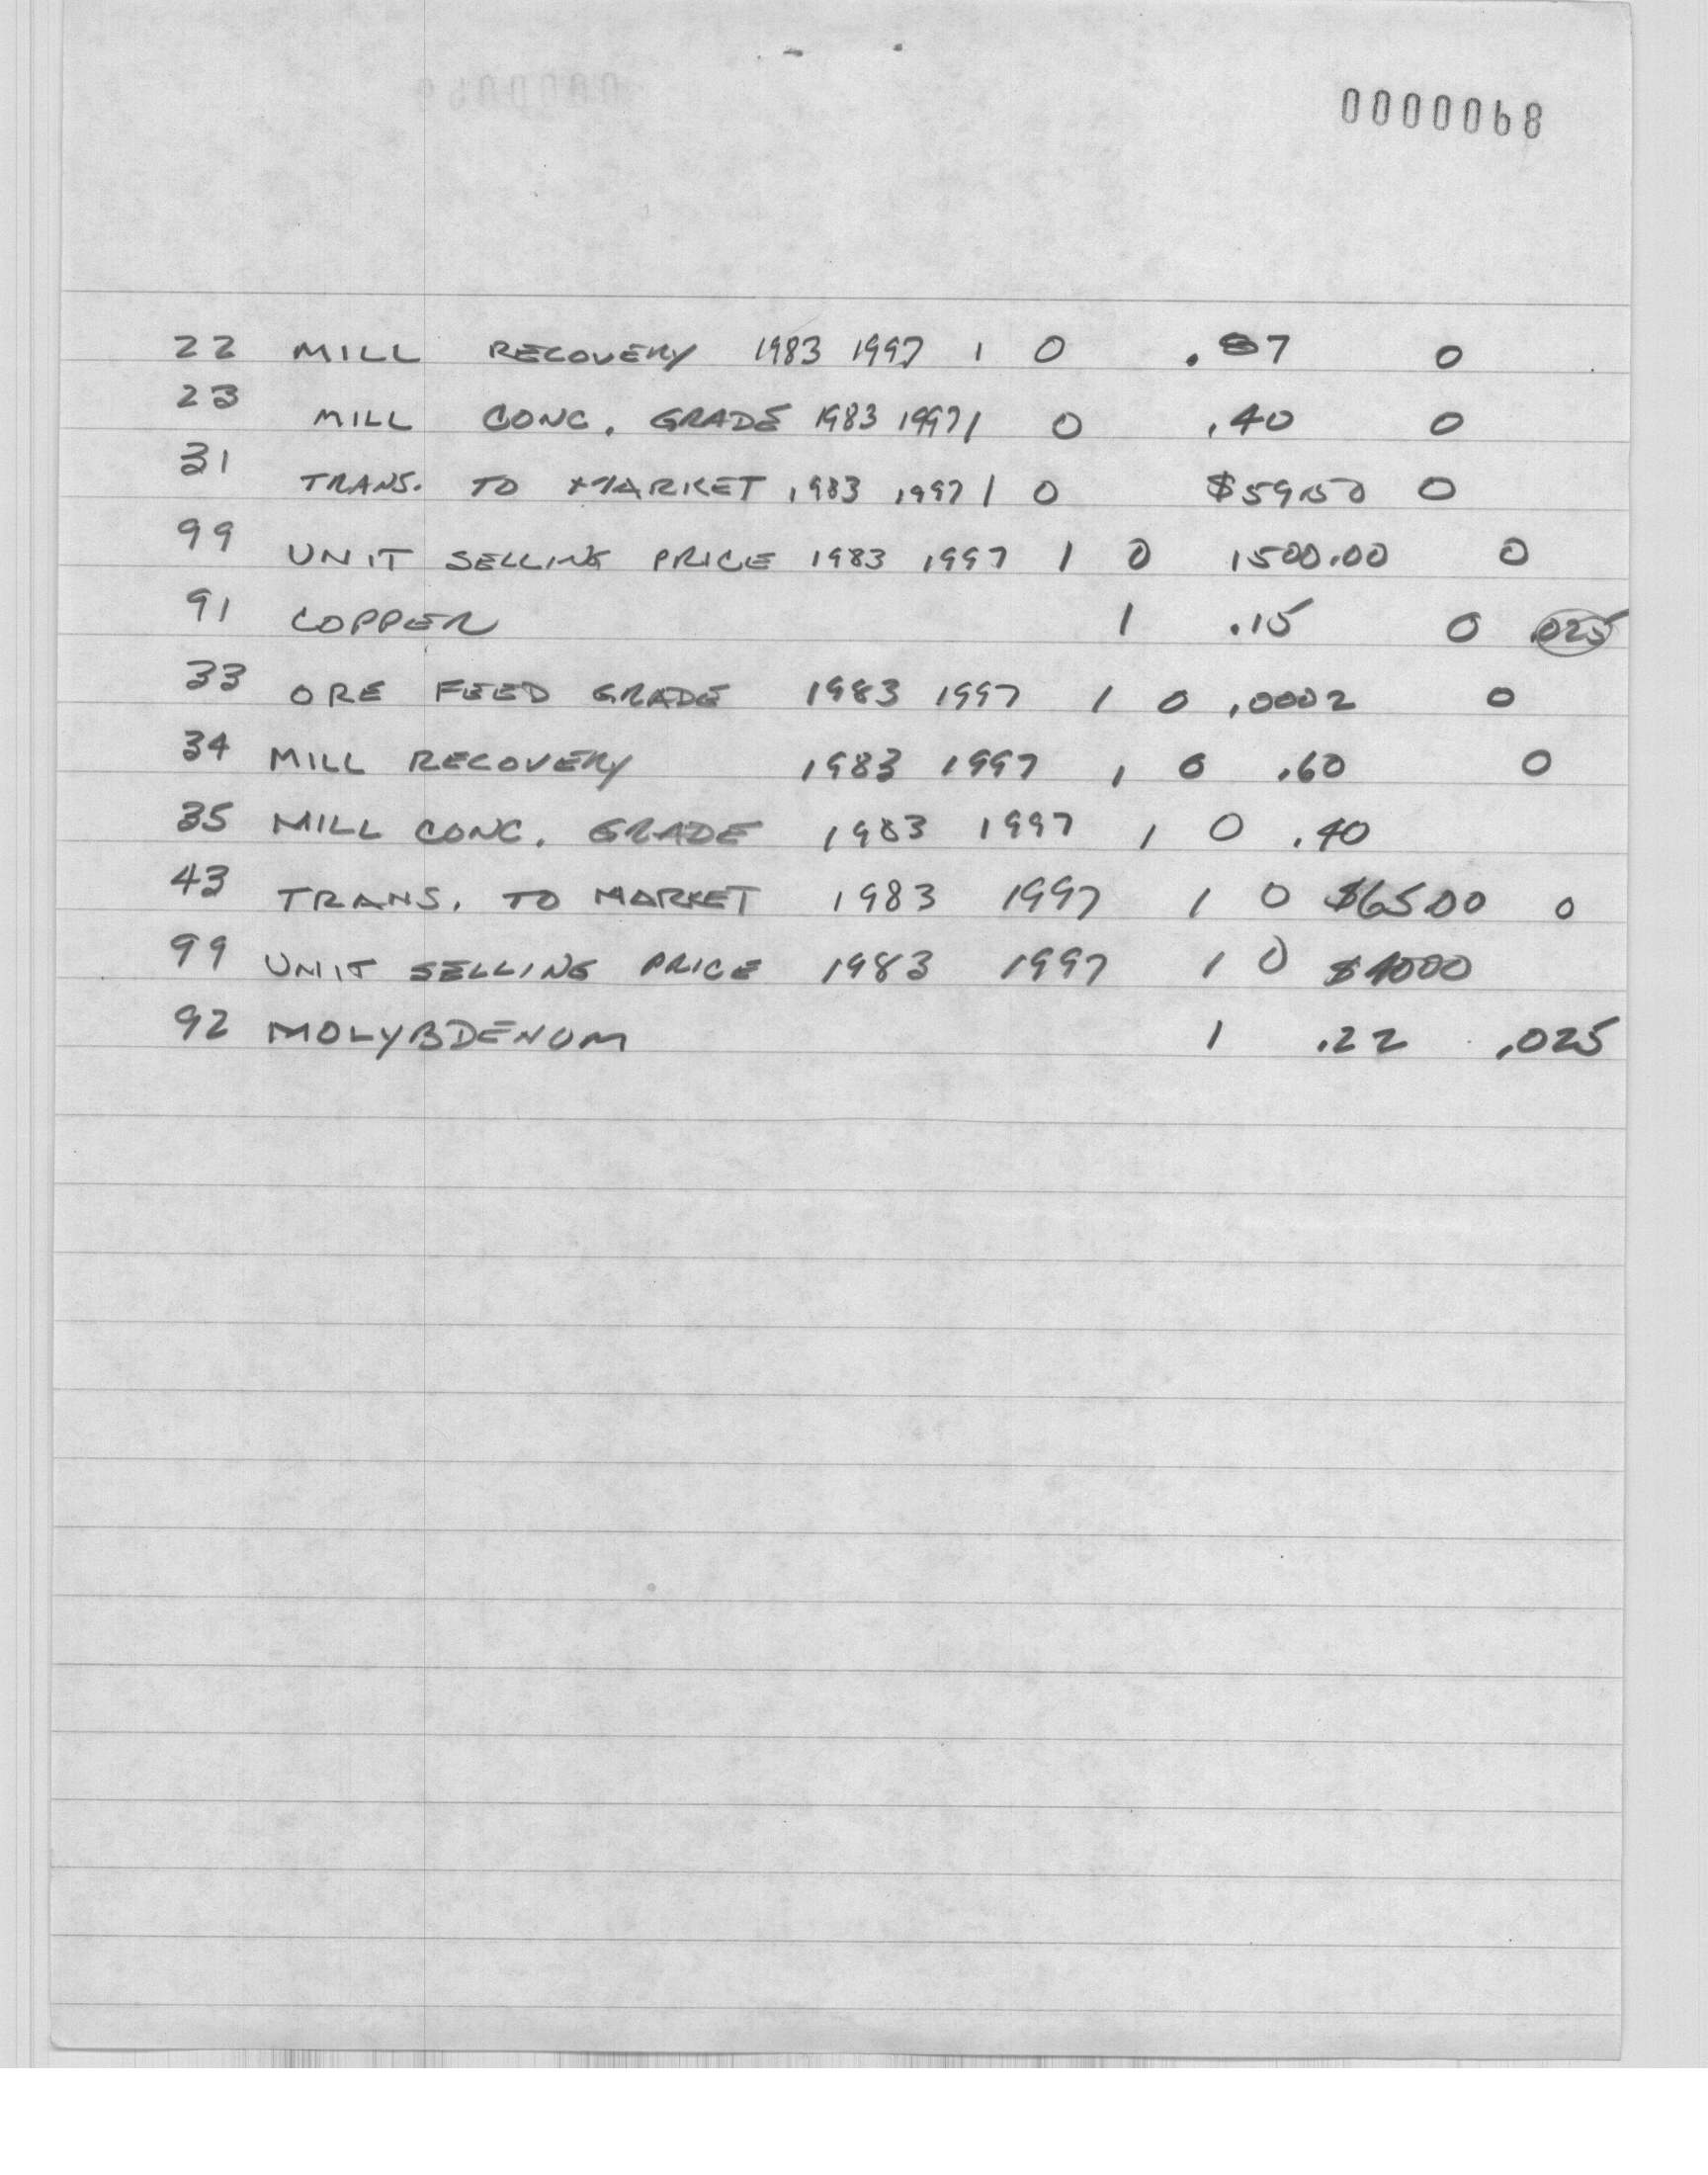 0000068
22 MILL RECOVERY 1983 1997 1 0 .87 0
23 MILL CONC. GRADE 1983 1997 1 0 .40 0
31 TRANS. TO MARKET 1983 1997 1 0 $59.50 0
99 UNIT SELLING PRICE 1983 1997 1 0 1500.00 0
91 COPPER 1 .15 0 .025
33 ORE FEED GRADE 1983 1997 1 0 .0002 0
34 MILL RECOVERY 1983 1997 1 0 .60 0
35 MILL CONC. GRADE 1983 1997 1 0 .40
43 TRANS. TO MARKET 1983 1997 1 0 $65.00 0
99 UNIT SELLING PRICE 1983 1997 1 0
92 MOLYBDENUM 1 .22 .025